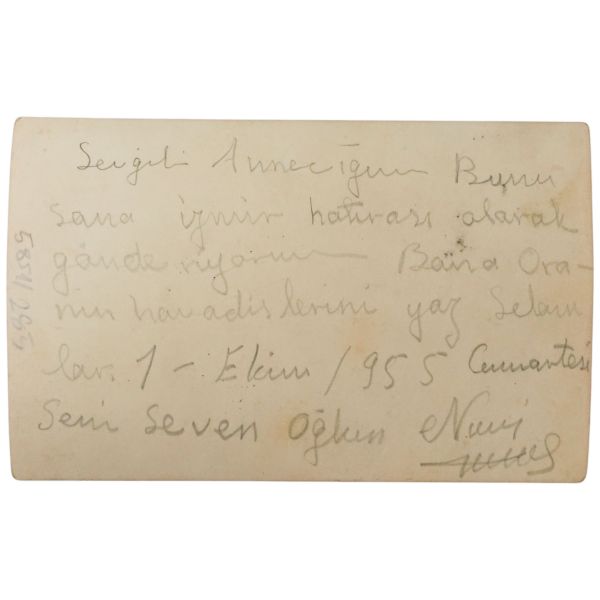 Sevgili Anneciğim Bunu
sana izmir hatırası olarak
gönderiyorum Bana Ora-
nın havadislerini yaz Selam
lar. 1 - Ekim / 955 Cumartesi
Seni Seven Oğlun Nuri